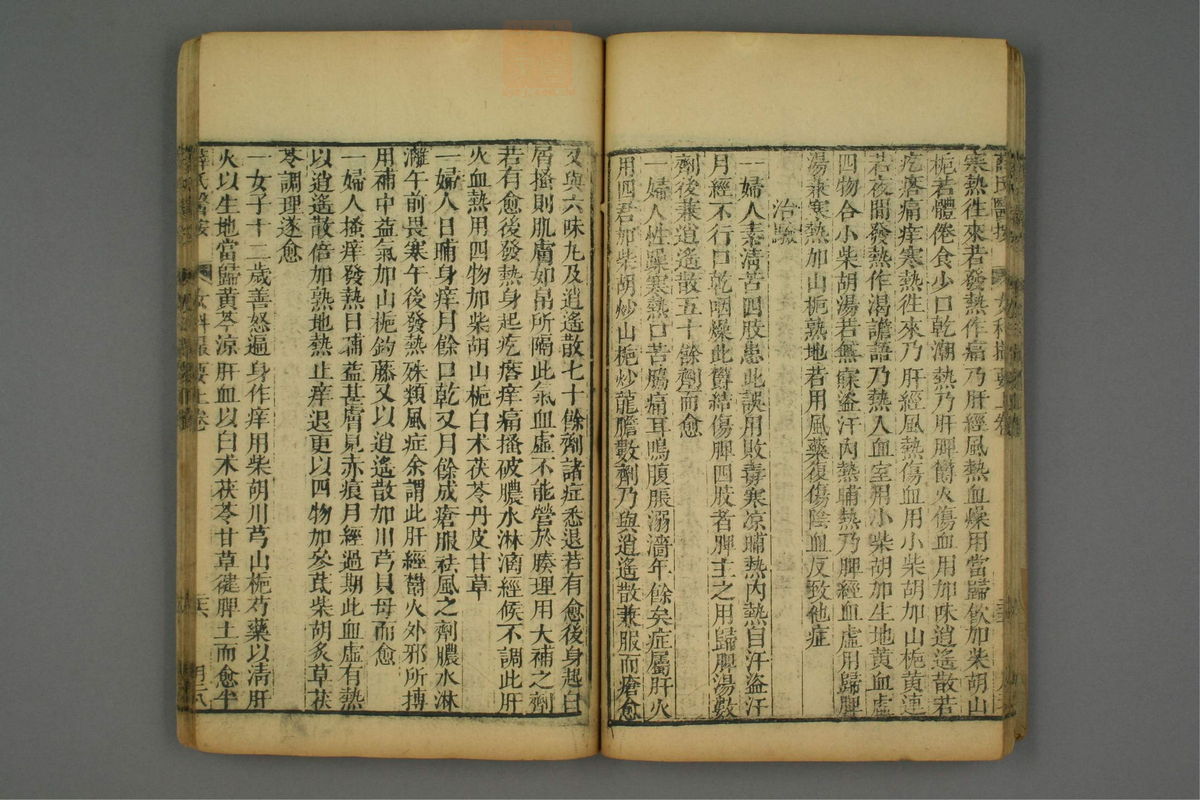 寒熱徃來者發熱作痛乃肝經風熱血燥用當歸飲加柴胡山
梔若體倦食少口乾潮熱乃肝脾欝火傷血用加味逍遙散若
疙瘩痛痒寒熱徃來乃肝經風熱傷血用小柴胡加山梔黃連
若夜間發熱作渴譫語乃熱入血室用小柴胡加生地黃血虛
四物合小柴胡湯若無寐盜汗內熱晡熱乃脾經血虛用歸脾
湯兼寒熱加山梔熟地若用風藥復傷陰血反致他症
治驗
一婦人素清苦四肢患此誤用敗毒寒凉晡熱內熱自汗盜汗
月經不行口乾咽燥此欝結傷脾四肢者脾主之用歸脾湯數
劑後兼逍遙散五十餘劑而愈
一婦人性躁寒熱口苦脇痛耳鳴腹脹溺濇年餘矣症屬肝火
用四君加柴胡炒山梔炒龍膽數劑乃與逍遙散兼服而瘡愈
又與六味丸及逍遙散七十餘劑諸症悉退若有愈後身起白
屑搔則肌膚如帛所隔此氣血虛不能營於腠理用大補之劑
若有愈後發熱身起疙瘩痒痛搔破膿水淋滴經候不調此肝
火血熱用四物加柴胡山梔白术茯苓丹皮甘草
一婦人日晡身痒月餘口乾又月餘成瘡服祛風之劑膿水淋
灕午前畏寒午後發熱殊類風症余謂此肝經欝火外邪所搏
用補中益氣加山梔鈎藤又以逍遙散加川芎貝母而愈
一婦人搔痒發熱日晡益甚膚見赤痕月經過期此血虛有熱
以逍遙散倍加熟地熱止痒退更以四物加參芪柴胡炙草茯
苓調理遂愈
一女子十二歲善怒遍身作痒用柴胡川芎山梔芍藥以清肝
火以生地當歸黃芩涼肝血以白术茯苓甘草健脾土而愈半
薛氏醫按 女科撮要上卷